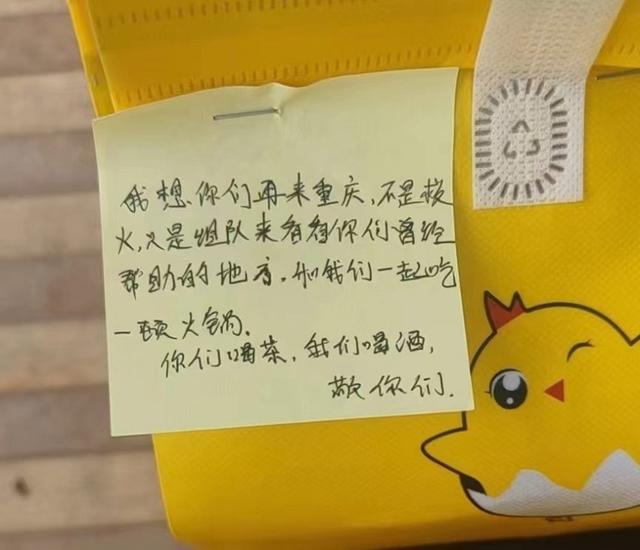 我想你们再来重庆,不是救
火,只是组队来看看你们曾经
帮助的地方.和我们一起吃
一顿火锅.
你们喝茶,我们喝酒,
敬你们.